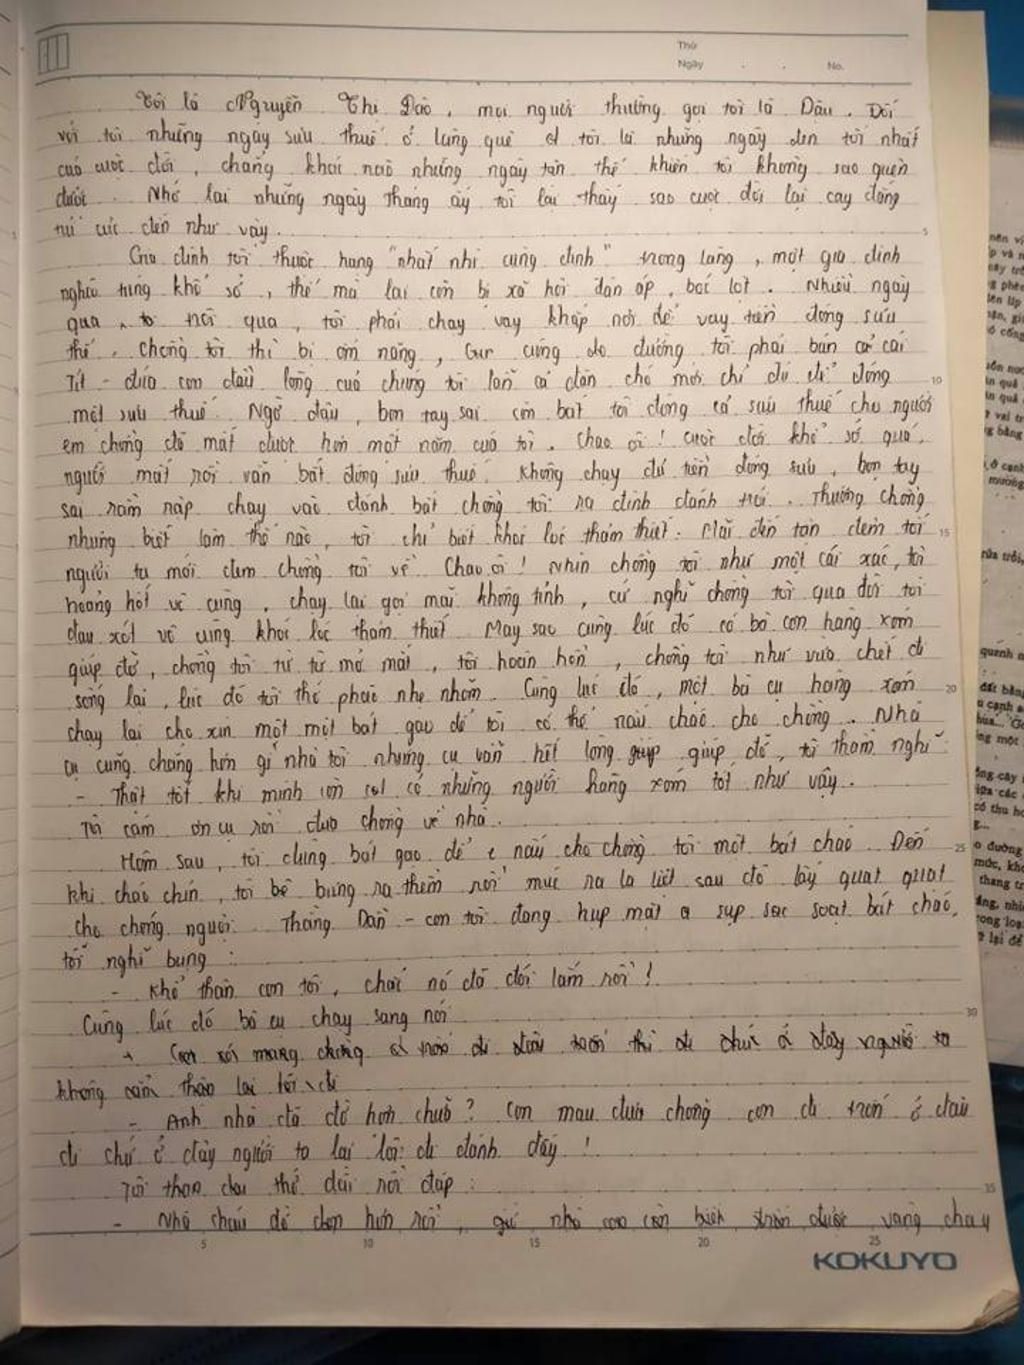 Thứ
Ngày . . No.
Tôi là Nguyễn Thị Đào, mọi người thường gọi tôi là Dậu. Đối
với tôi những ngày sưu thuế ở làng quê tôi là những ngày đen tối nhất
của cuộc đời, chẳng khác nào những ngày tận thế khiến tôi không sao quên
được. Nhớ lại những ngày tháng ấy tôi lại thấy sao cuộc đời lại cay đắng
tủi cực đến như vậy.
Gia đình tôi thuộc hạng "nhất nhì cùng đinh" trong làng, một gia đình
nghèo túng khổ sở, thế mà lại còn bị xã hội đàn áp, bóc lột. Nhiều ngày
qua, tôi phải chạy vạy khắp nơi để vay tiền đóng sưu
thế. Chồng tôi thì bị ốm nặng, cùng đường tôi phải bán cả cái
Tít - đứa con đầu lòng của chúng tôi lẫn cả đàn chó mới chỉ đủ để đóng
một sưu thuế. Ngờ đâu, bọn tay sai còn bắt tôi đóng cả sưu thuế cho người
em chồng đã mất được hơn một năm của tôi. Chao ôi! cuộc đời khổ sở quá,
người mất rồi vẫn bắt đóng sưu thuế. Không chạy đủ tiền đóng sưu, bọn tay
sai rầm rập chạy vào đánh bắt chồng tôi ra đình đánh trói. Thương chồng
nhưng biết làm thế nào, tôi chỉ biết khóc lóc thảm thiết. Mãi đến tận đêm tối
người ta mới đem chồng tôi về. Chao ôi! Nhìn chồng tôi như một cái xác, tôi
hoảng hốt vô cùng, chạy lại gọi mãi không tỉnh, cứ nghĩ chồng tôi qua đời tôi
đau xót vô cùng khóc lóc thảm thiết. May sao cùng lúc đó có bà con hàng xóm
giúp đỡ, chồng tôi từ từ mở mắt, tôi hoàn hồn, chồng tôi như vừa chết đi
sống lại, lúc đó tôi thở phào nhẹ nhõm. Cùng lúc đó, một bà cụ hàng xóm
chạy lại cho xin một một bát gạo để tôi có thể nấu cháo cho chồng. Nhà
cụ cũng chẳng hơn gì nhà tôi nhưng cụ vẫn hết lòng giúp giúp đỡ, tôi thầm nghĩ:
- Thật tốt khi mình còn có những người hàng xóm tốt như vậy.
Tôi cảm ơn cụ rồi đưa chồng về nhà.
Hôm sau, tôi dùng bát gạo để nấu cho chồng tôi một bát cháo. Đến
khi cháo chín, tôi bê bưng ra thềm rồi múc ra la liệt sau đó lấy quạt quạt
cho chóng nguội. Thằng Dần - con tôi đang húp mặt sụp sạc soạt bát cháo,
tôi nghĩ bụng:
- Khổ thân con tôi, chắc nó đã đói lắm rồi!
Cùng lúc đó bà cụ chạy sang nói
không cầm thảo lại lôi đi
- Anh nhà đã đỡ hơn chưa? Con mau đưa chồng con đi trốn ở đâu
đi chứ ở đây người ta lại lôi đi đánh đấy!
Tôi than thở dài rồi đáp:
- Nhà cháu đỡ hơn rồi, vâng chạy
5
10
15
20
25
30
35
5 10 15 20 25
KOKUYO